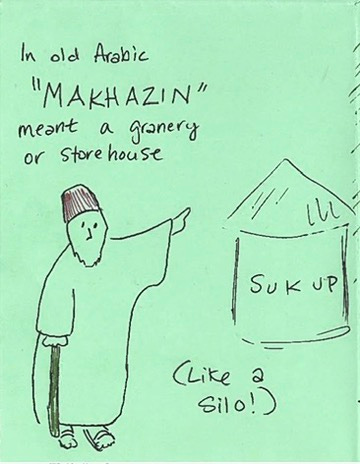 In old Arabic
"MAKHAZIN"
meant a granery
or storehouse
SUKUP
(Like a
silo!)